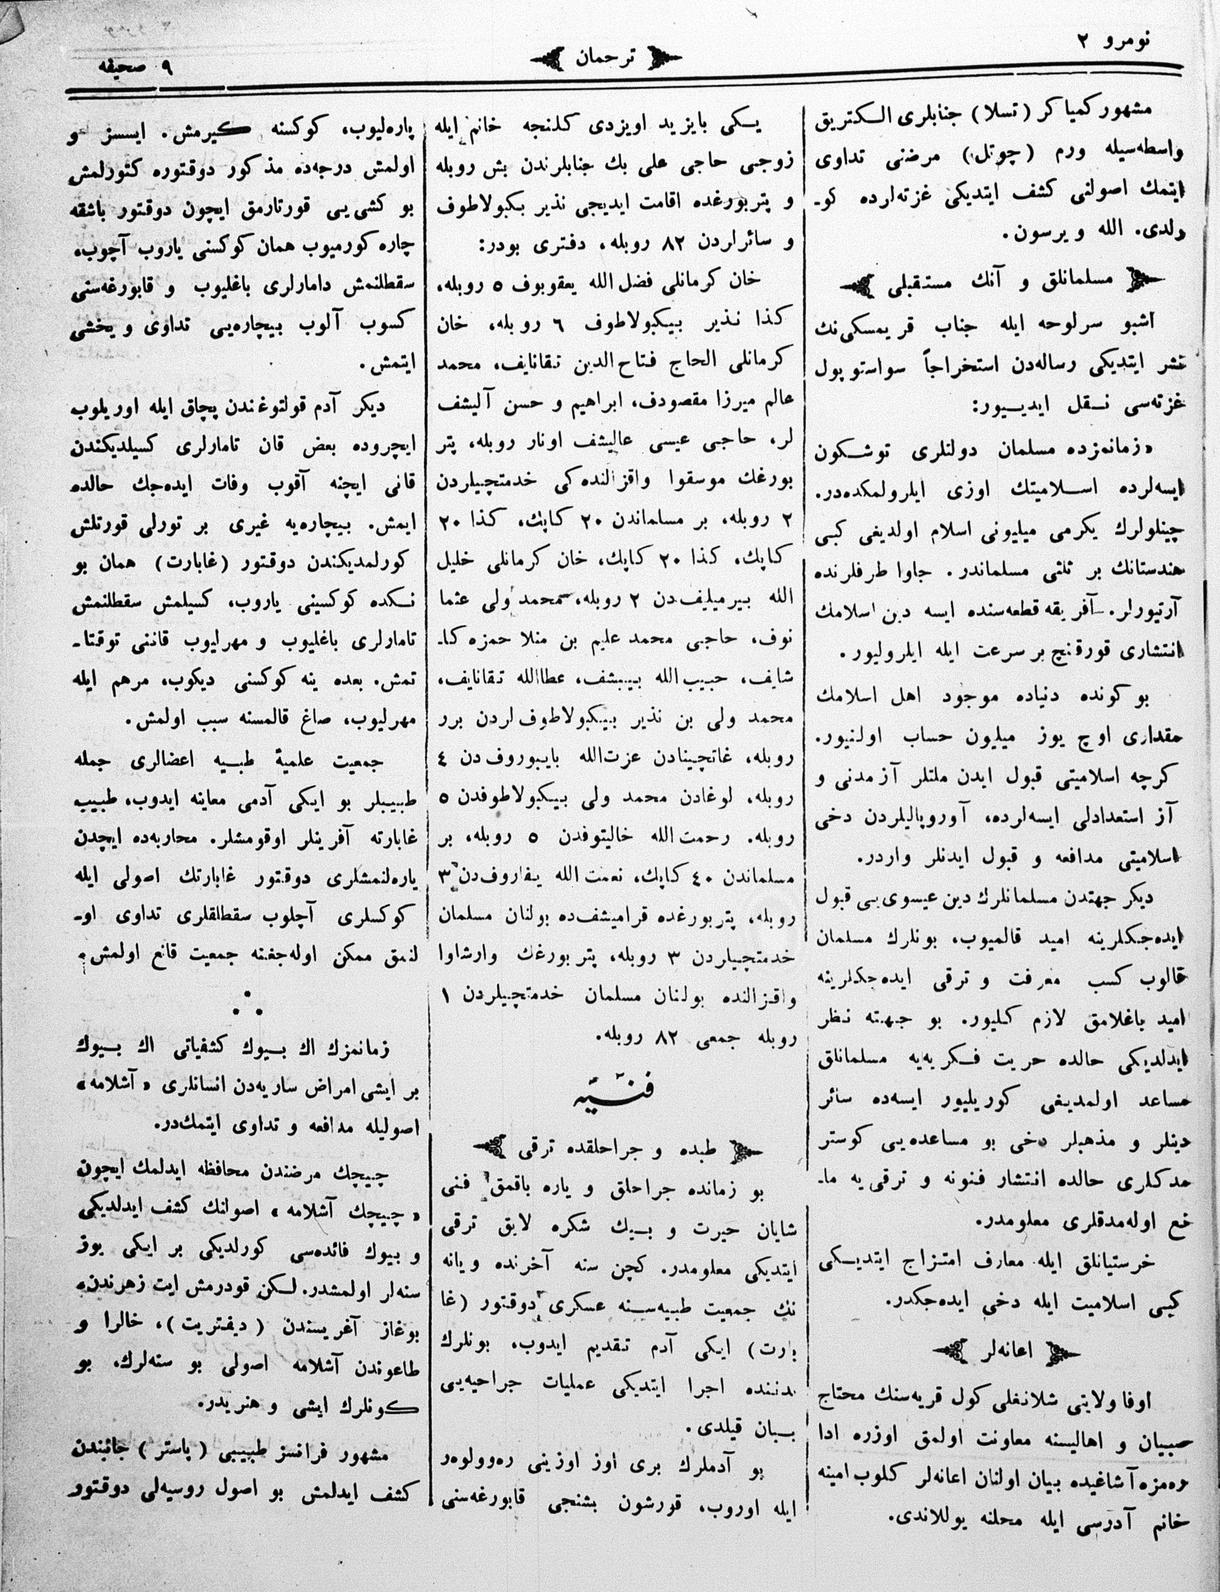 نومرو ٢
ترجمان
٩ صحیفه
مشهور كمیا كر (تسلا) جنابلری الكتریق
واسطه‌سیله ورم (چوتل) مرضنی تداوی
ایتمك اصولنی كشف ایتدیكی غزته‌لرده كو-
رلدی. الله ویرسون.
مسلمانلق و آنك مستقبلی
اشبو سرلوحه ایله جناب قریمسكی‌نك
نشر ایتدیكی رساله‌دن استخراجاً سواستوپول
غزته‌سی نقل ایدییور:
«زمانمزده مسلمان دولتلری توشكون
ایسه‌لرده اسلامیتك اوزی ایلرولمكده‌در.
چینلولرك یكرمی میلیونی اسلام اولدیغی كبی
هندستانك بر ثلثی مسلماندر. جاوا طرفلرنده
آرتیورلر. آفریقه قطعه‌سنده ایسه دین اسلامك
انتشاری قورقنچ بر سرعت ایله ایلرولیور.
بو كونده دنیاده موجود اهل اسلامك
مقداری اوچ یوز میلیون حساب اولنیور.
كرچه اسلامیتی قبول ایدن ملتلر آز مدنی و
آز استعدادلی ایسه‌لرده، آوروپالیلردن دخی
اسلامیتی مدافعه و قبول ایدنلر واردر.
دیكر جهتدن مسلمانلرك دین عیسوی‌یی قبول
ایده‌جكلرینه امید قالمیوب، بونلرك مسلمان
قالوب كسب معرفت و ترقی ایده‌جكلرینه
امید باغلامق لازم كلیور. بو جهته نظر
ایدلدیكی حالده حریت فكریه‌یه مسلمانلق
مساعد اولمدیغی كوریلیور ایسه‌ده سائر
دینلر و مذهبلر دخی بو مساعده‌یی كوستر
مدكلری حالده انتشار فنونه و ترقی‌یه ما-
نع اوله‌مدقلری معلومدر.
خرستیانلق ایله معارف امتزاج ایتدیكی
كبی اسلامیت ایله دخی ایده‌جكدر.
اعانه‌لر
اوفا ولایتی شلانغلی كول قریه‌سنك محتاج
صبیان و اهالیسنه معاونت اولمق اوزره ادا
ره‌مزه آشاغیده بیان اولنان اعانه‌لر كلوب امینه
خانم آدرسی ایله محلنه یوللاندی.
یكی بایزید اویزدی كلنجه خانم ایله
زوجی حاجی علی بك جنابلرندن بش روبله
و پتربورغده اقامت ایدیجی نذیر بكبولاطوف
و سائرلردن ٨٢ روبله، دفتری بودر:
خان كرمانلی فضل الله یعقوبوف ٥ روبله،
كذا نذیر بیكبولاطوف ٦ روبله، خان
كرمانلی الحاج فتاح الدین تقانایف، محمد
عالم میرزا مقصودف، ابراهیم و حسن آلیشف
لر، حاجی عیسی عالیشف اونار روبله، پتر
بورغك موسقوا واقزالنده‌كی خدمتچیلردن
٢ روبله، بر مسلماندن ٢٠ كاپك، كذا ٢٠
كاپك، كذا ٢٠ كاپك، خان كرمانلی خلیل
الله بیرمیلیف‌دن ٢ روبله، محمد ولی عثما
نوف، حاجی محمد علیم بن منلا حمزه كا-
شایف، حبیب‌الله بیبشف، عطاالله تقانایف،
محمد ولی بن نذیر بیكبولاطوف‌لردن برر
روبله، غاتچینادن عزت‌الله بایبوروف‌دن ٤
روبله، لوغادن محمد ولی بیكبولاطوفدن ٥
روبله. رحمت‌الله خالیتوفدن ٥ روبله، بر
مسلماندن ٤٠ كاپك، نعمت الله یفاروف‌دن ٣
روبله، پتربورغده قرامیشف‌ده بولنان مسلمان
خدمتچیلردن ٣ روبله، پتربورغك وارشاوا
واقزالنده بولنان مسلمان خدمتچیلردن ١
روبله جمعی ٨٢ روبله.
فنیه
طبده و جراحلقده ترقی
بو زمانده جراحلق و یاره باقمق فنی
شایان حیرت و بیك شكره لایق ترقی
ایتدیكی معلومدر. كچن سنه آخرنده ویانه
نك جمعیت طبیه‌سنه عسكری دوقتور (غا
بارت) ایكی آدم تقدیم ایدوب، بونلرك
بدننده اجرا ایتدیكی عملیات جراحیه‌یی
بیان قیلدی.
بو آدملرك بری اوز اوزینی ره‌وولوه‌ر
ایله اوروب، قورشون بشنجی قابورغه‌سنی
پاره‌لیوب، كوكسنه كیرمش. ایسسز و
اولمش درجه‌ده مذكور دوقتوره كتورلمش
بو كشی‌یی قورتارمق ایچون دوقتور باشقه
چاره كورمیوب همان كوكسنی یاروب آچوب،
سقطلنمش دامارلری باغلیوب و قابورغه‌سنی
كسوب آلوب بیچاره‌یی تداوی و یخشی
ایتمش.
دیكر آدم قولتوغندن پچاق ایله اوریلوب
ایچروده بعض قان تامارلری كسیلدیكندن
قانی ایچنه آقوب وفات ایده‌جك حالده
ایمش. بیچاره‌یه غیری بر تورلی قورتلش
كورلمدیكندن دوقتور (غابارت) همان بو
نكده كوكسینی یاروب، كسیلمش سقطلنمش
تامارلری باغلیوب و مهرلیوب قاننی توقتا-
تمش. بعده ینه كوكسنی دیكوب، مرهم ایله
مهرلیوب، صاغ قالمسنه سبب اولمش.
جمعیت علمیۀ طبیه اعضالری جمله
طبیبلر بو ایكی آدمی معاینه ایدوب، طبیب
غابارته آفرینلر اوقومشلر. محاربه‌ده ایچدن
یاره‌لنمشلری دوقتور غابارتك اصولی ایله
كوكسلری آچلوب سقطلقلری تداوی او-
لنمق ممكن اوله‌جغنه جمعیت قانع اولمش.
زمانمزك اك بیوك كشفیاتی اك بیوك
بر ایشی امراض ساریه‌دن انسانلری «آشلامه»
اصولیله مدافعه و تداوی ایتمك‌در.
چیچك مرضندن محافظه ایدلمك ایچون
«چیچك آشلامه» اصولنك كشف ایدلدیكی
و بیوك فائده‌سی كورلدیكی بر ایكی یوز
سنه‌لر اولمشدر. لكن قودرمش ایت زهرندن،
بوغاز آغریسندن (دیفتریت)، خالرا و
طاعوندن آشلامه اصولی بو سنه‌لرك، بو
كونلرك ایشی و هنریدر.
مشهور فرانسز طبیبی (پاستر) جانبندن
كشف ایدلمش بو اصول روسیه‌لی دوقتور